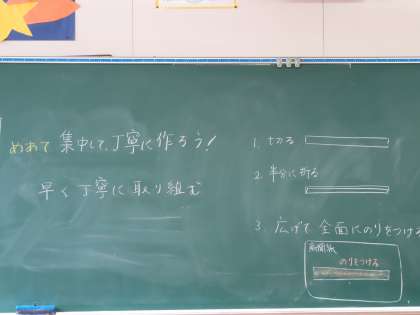 めあて 集中して、丁寧に作ろう!
早く丁寧に取り組む
1. 切る
2. 半分に折る
3. 広げて 全面にのりをつける
新聞紙
のりをつける